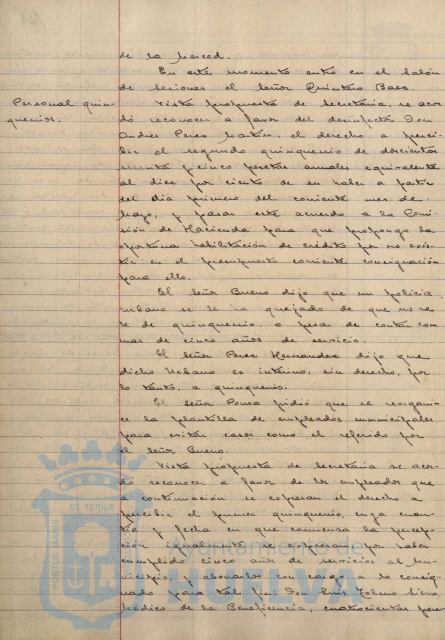 de la Merced.
En este momento entra en el Salón
de Sesiones el Señor Quintero Baez.
Personal quin-
quenios.
Vista propuesta de Secretaría, se acor-
dó reconocer a favor del desinfector Don
Andrés Perez Martin, el derecho a perci-
bir el segundo quinquenio de doscientas
y cinco pesetas anuales equivalente
al diez por ciento de su haber a partir
del dia primero del corriente mes de
Mayo, y pasar este acuerdo a la Comi-
sión de Hacienda para que proponga la
oportuna habilitación de crédito por no exis-
tir en el presupuesto corriente consignación
para ello.
El Señor Bueno dijo que un policía
urbano se le ha quejado de que no se
le de quinquenio, a pesar de contar con
mas de cinco años de servicio.
El Señor Perez Hernandez dijo que
dicho Urbano es interino, sin derecho, por
lo tanto, a quinquenio.
El Señor Ponsa pidió que se reorgani-
ce la plantilla de empleados municipales
para evitar casos como el referido por
el Señor Bueno.
Vista propuesta de Secretaría se acor-
dó reconocer a favor de los empleados que
a continuación se expresan el derecho a
percibir el primer quinquenio, cuya cuan-
tía y fecha en que comienza la percep-
ción igualmente se expresan, por haber
cumplido cinco años de servicios al Mu-
nicipio y abonarlos con cargo a lo consig-
nado para tal fin: Don Luis
Médico de la Beneficencia, cuatrocientas pese-
PORTUS MARIS
ET TERRAE
Ayuntamiento de
HUELVA